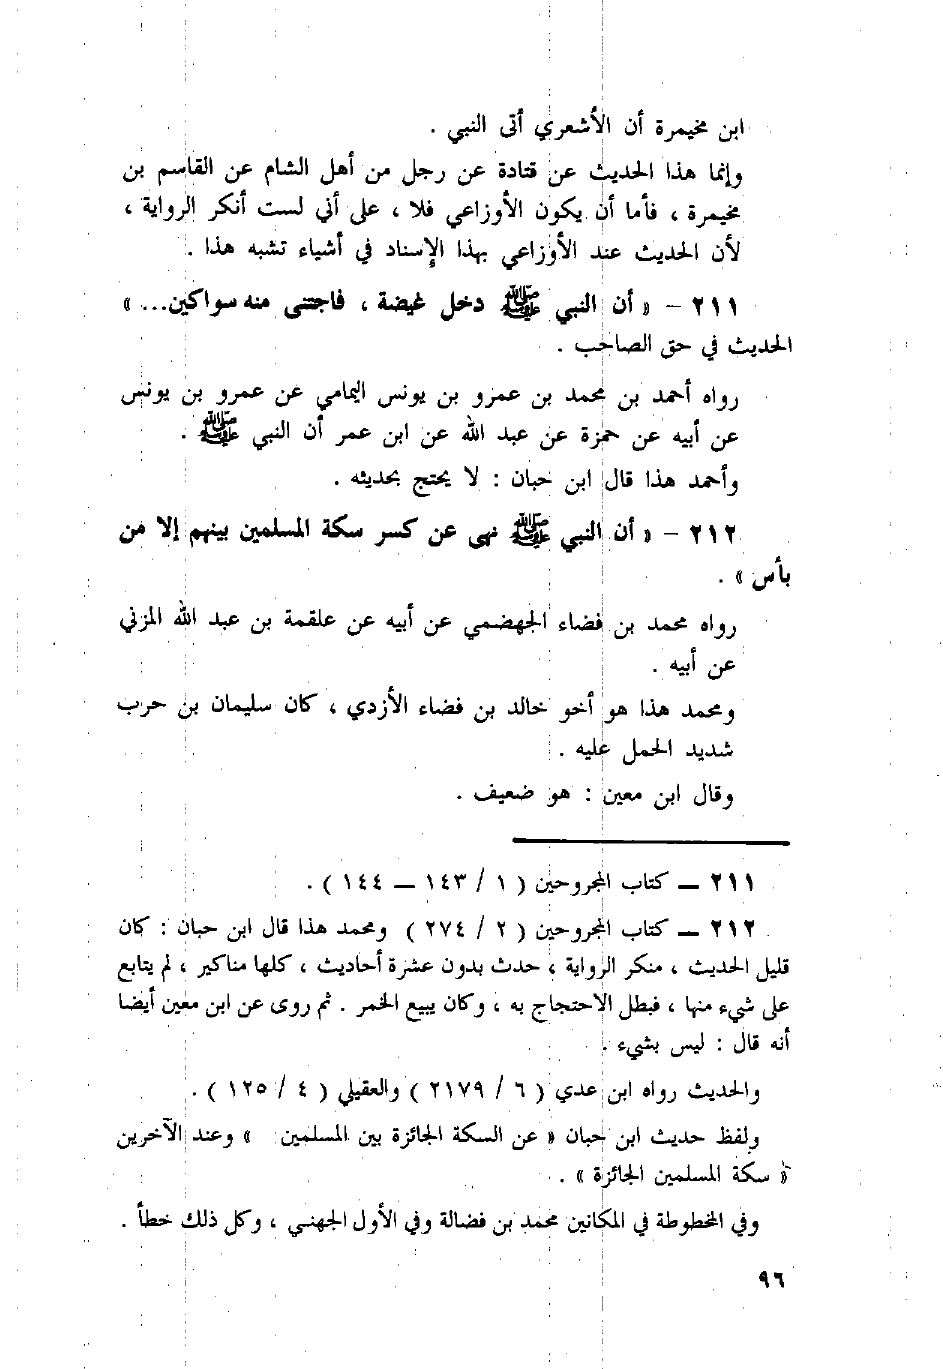 ابن مخيمرة أن الأشعري أتى النبي .
وإنما هذا الحديث عن قتادة عن رجل من أهل الشام عن القاسم بن
مخيمرة ، فأما أن يكون الأوزاعي فلا ، على أني لست أنكر الرواية ،
لأن الحديث عند الأوزاعي بهذا الإسناد في أشياء تشبه هذا .
٢١١ – « أن النبي ﷺ دخل غيضة ، فاجتنى منه سواكين... »
الحديث في حق الصاحب .
رواه أحمد بن محمد بن عمرو بن يونس اليمامي عن عمرو بن يونس
عن أبيه عن حمزة عن عبد الله عن ابن عمر أن النبي ﷺ .
وأحمد هذا قال ابن حبان : لا يحتج بحديثه .
٢١٢ – « أن النبي ﷺ نهى عن كسر سكة المسلمين بينهم إلا من
بأس » .
رواه محمد بن فضاء الجهضمي عن أبيه عن علقمة بن عبد الله المزني
عن أبيه .
ومحمد هذا هو أخو خالد بن فضاء الأزدي ، كان سليمان بن حرب
شديد الحمل عليه .
وقال ابن معين : هو ضعيف .
٢١١ – كتاب المجروحين ( ١ / ١٤٣ – ١٤٤ ) .
٢١٢ – كتاب المجروحين ( ٢ / ٢٧٤ ) ومحمد هذا قال ابن حبان : كان
قليل الحديث ، منكر الرواية ، حدث بدون عشرة أحاديث ، كلها مناكير ، لم يتابع
على شيء منها ، فبطل الاحتجاج به ، وكان يبيع الخمر . ثم روى عن ابن معين أيضا
أنه قال : ليس بشيء .
والحديث رواه ابن عدي ( ٦ / ٢١٧٩ ) والعقيلي ( ٤ / ١٢٥ ) .
ولفظ حديث ابن حبان « عن السكة الجائزة بين المسلمين » وعند الآخرين
« سكة المسلمين الجائزة » .
وفي المخطوطة في المكانين محمد بن فضالة وفي الأول الجهني ، وكل ذلك خطأ .
٩٦